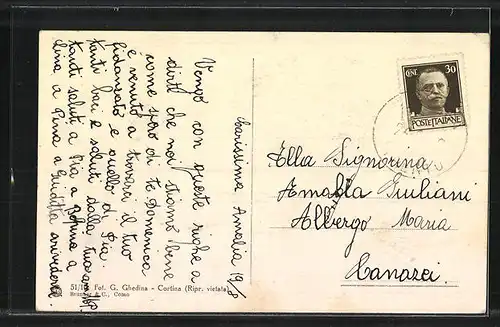 Carissima Amalia 19/8
Vengo con queste righe a
dirti che noi stiamo bene
come spero di te Domenica
è venuto a trovarci il tuo
fidanzato e quello di Pia.
tanti baci e saluti dalla tua
tanti saluti a Pia a Pepina a
lina a Pina a Giuditta
CENT. 30
POSTE ITALIANE
Alla Signorina
Amalia Giuliani
Albergo Maria
Canazei.
51/1 Fot. G. Ghedina - Cortina (Ripr. vietata)
& C., Como